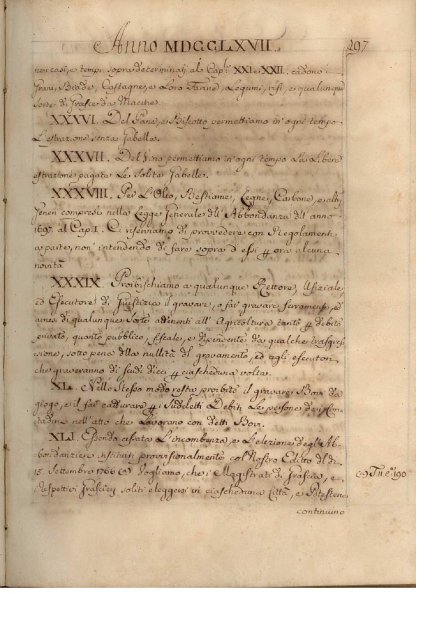 Anno MDCCLXVII.
297
tempi sopra determinati al Cap. XXI. e XXII.
Biade, Castagne, e Loro Farine, Legumi, risi, e qualunque
sorte di
XXXVI. Del Pane, e Biscotto permettiamo in ogni tempo
L'estrazione senza Gabella.
XXXVII. Del Vino permettiamo in ogni tempo La Libera
estrazione pagate Le Solite Gabelle.
XXXVIII. Per L'Olio, Bestiame, Legne, Carbone, e altri
Generi compresi nella Legge Generale dell' Abbondanza dell' anno
1697 al Cap. I. Ci riserviamo di provvedere con Regolamenti
a parte, non intendendo di fare sopra d' essi per ora alcuna
novità.
XXXIX. Proibischiamo a qualunque Rettore, Ufiziale,
ed Esecutore di Giustizia il gravare, o far gravare ferramenti, ed
arnesi di qualunque Sorte attinenti all' Agricoltura tanto per debito
privato, quanto pubblico, fiscale, e dipendente da qualche trasgres
sione, sotto pena della nullità del gravamento, ed agli esecutori
che graveranno di scudi Dieci per ciascheduna volta.
XL. Nello stesso modo resta proibito il gravare i Bovi da
giogo, e il far catturare per i suddetti Debiti Le persone dei Con
tadini nell' atto che Lavorano con detti Bovi.
XLI. Essendo cessata L'incombenza, e L'elezione degli Ab
bondanzieri instituiti provvisionalmente col Nostro Editto del dì
15 Settembre 1766 (a) Vogliamo, che i Magistrati di
rispettivi soliti eleggersi in ciascheduna Città, e Potesteria
(a) T. II. c. 190
continuino